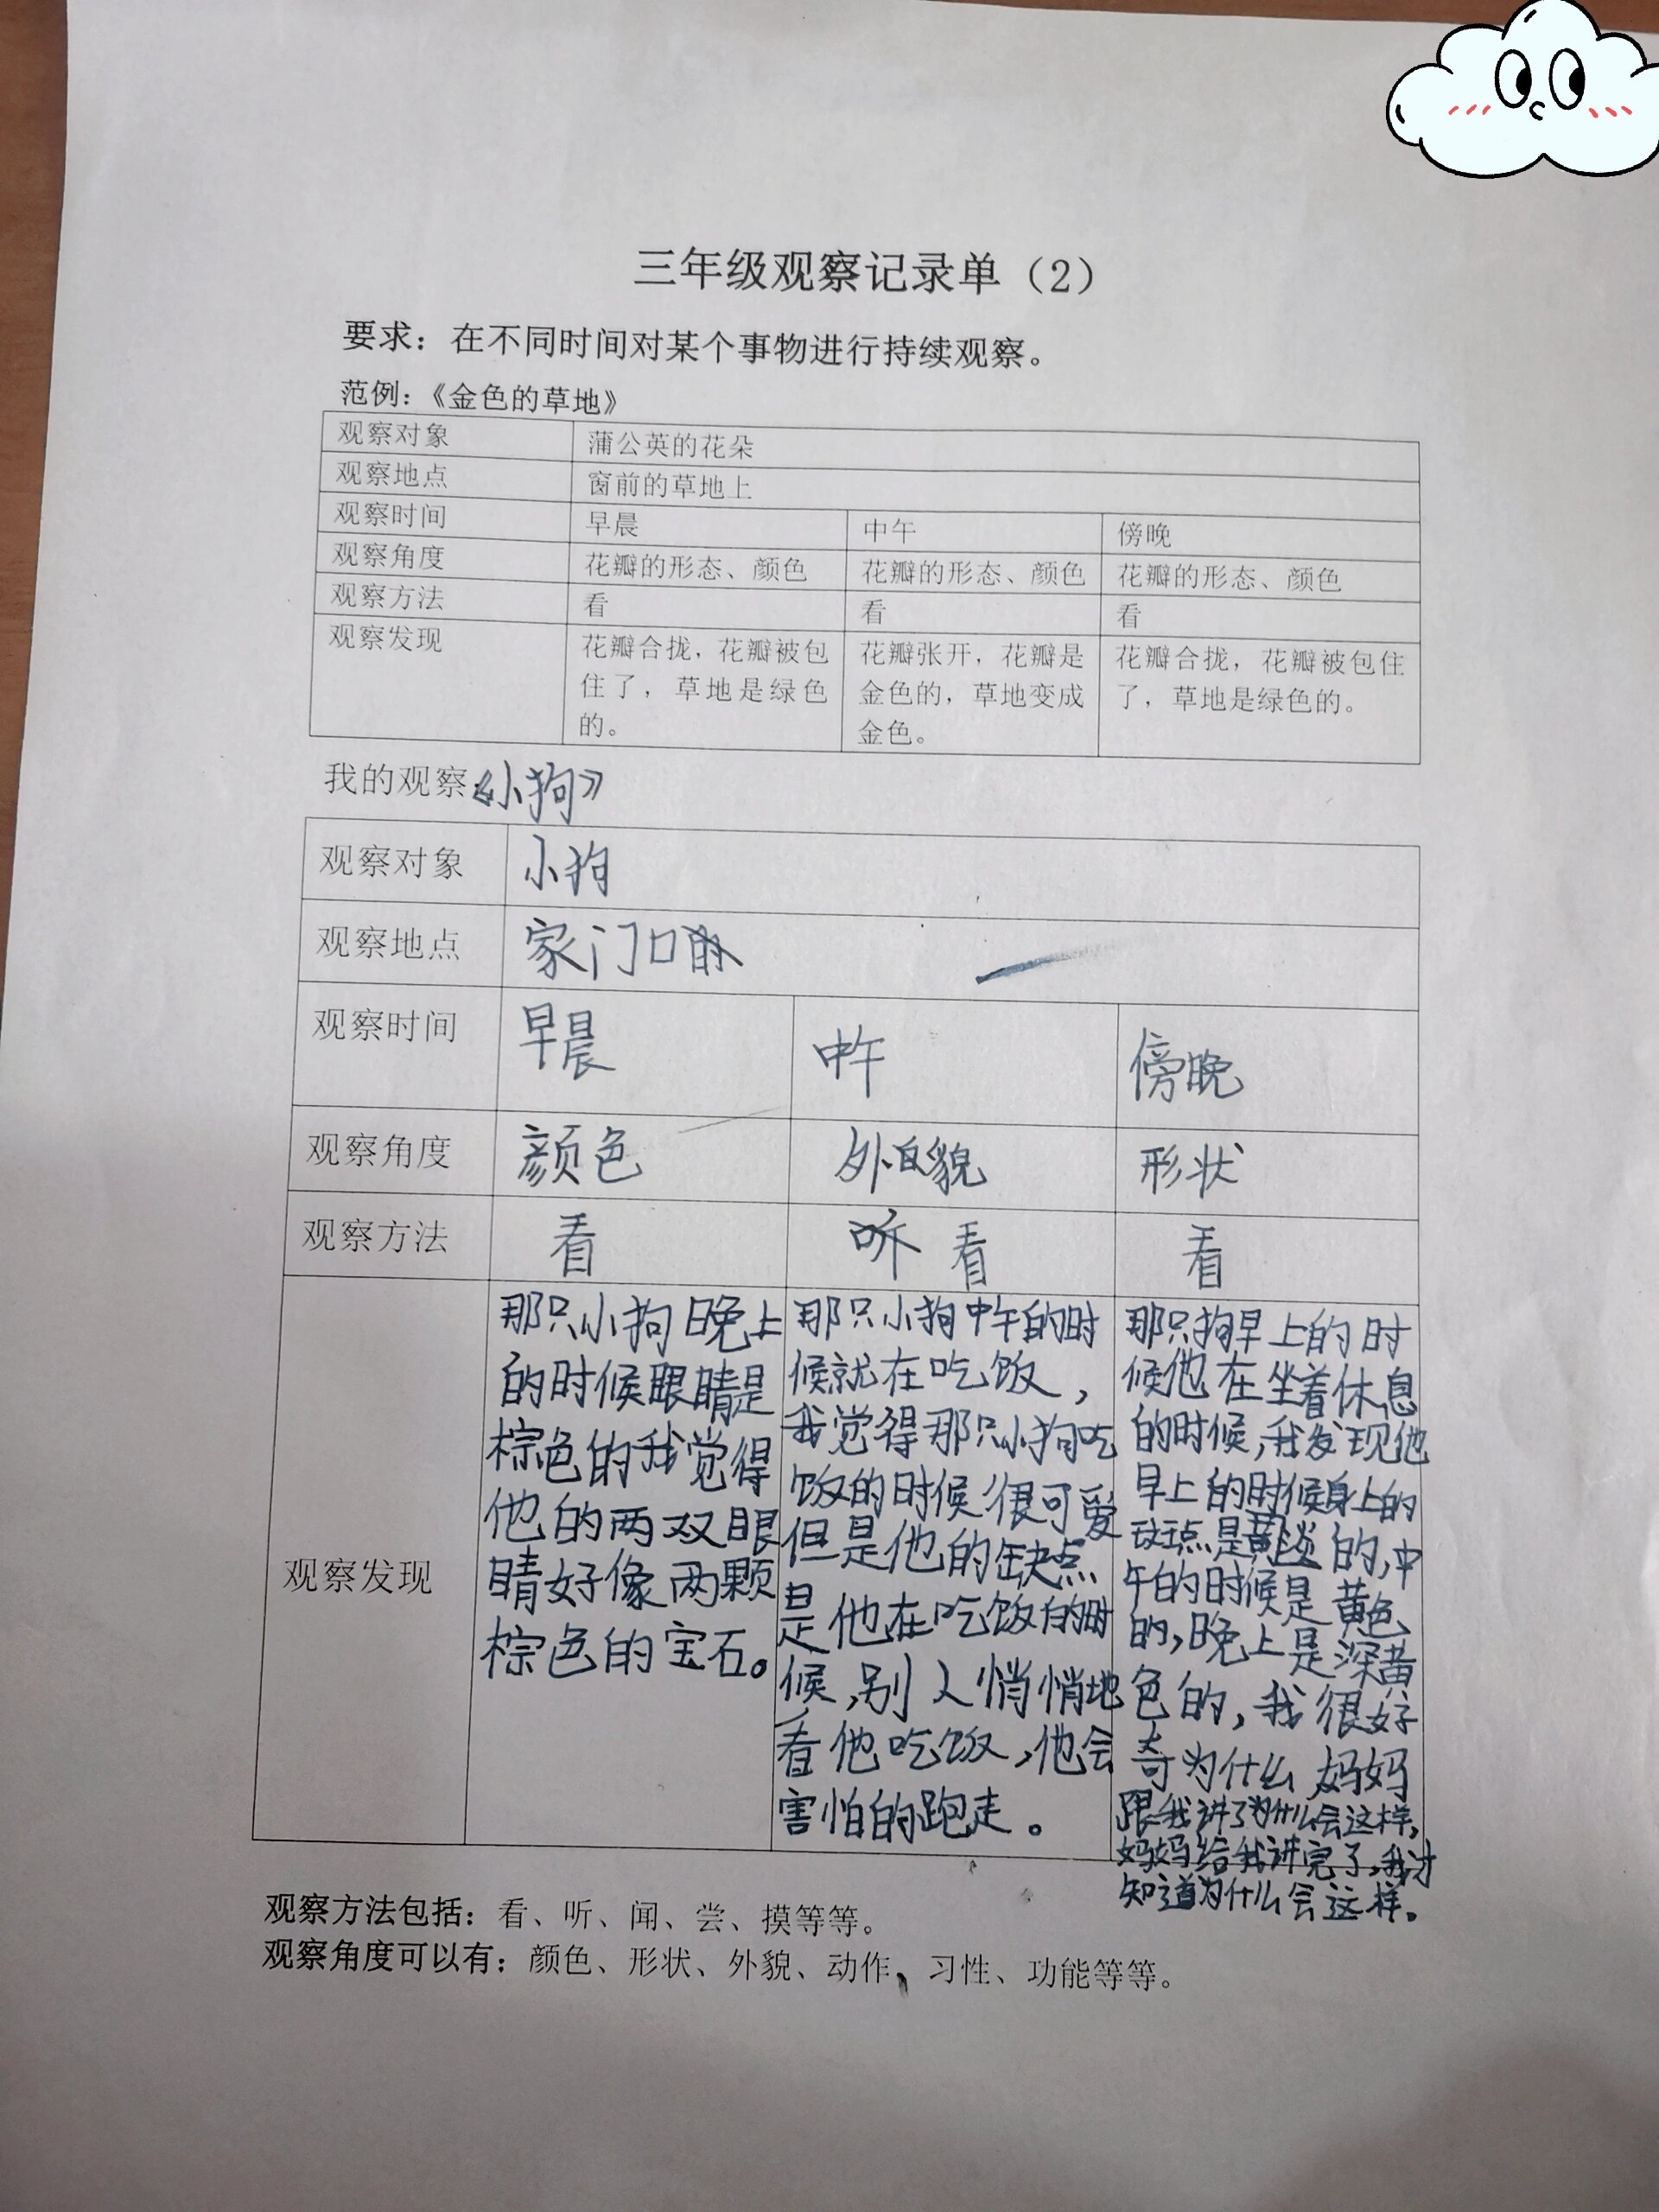 三年级观察记录单（2）
要求：在不同时间对某个事物进行持续观察。
范例：《金色的草地》
观察对象 蒲公英的花朵
观察地点 窗前的草地上
观察时间 早晨 中午 傍晚
观察角度 花瓣的形态、颜色 花瓣的形态、颜色 花瓣的形态、颜色
观察方法 看 看 看
观察发现
花瓣合拢，花瓣被包
住了，草地是绿色
的。
花瓣张开，花瓣是
金色的，草地变成
金色。
花瓣合拢，花瓣被包住
了，草地是绿色的。
我的观察：《小狗》
观察对象 小狗
观察地点 家门口
观察时间 早晨 中午 傍晚
观察角度 颜色 外貌 形状
观察方法 看 看 看
观察发现
那只小狗晚上
的时候眼睛是
棕色的我觉得
他的两双眼
睛好像两颗
棕色的宝石。
那只小狗中午的时
候就在吃饭，
我觉得那只小狗吃
饭的时候很可爱
但是他的缺点
是他在吃饭的时
候，别人悄悄地
看他吃饭，他会
害怕的跑走。
那只狗早上的时
候他在坐着休息
的时候，我发现他
早上的时候身上的
斑点是黄淡的，中
午的时候是黄色
的，晚上是深黄
色的，我很好
奇为什么妈妈
跟我讲了为什么会这样，
妈妈给我讲完了，我才
知道为什么会这样。
观察方法包括：看、听、闻、尝、摸等等。
观察角度可以有：颜色、形状、外貌、动作、习性、功能等等。